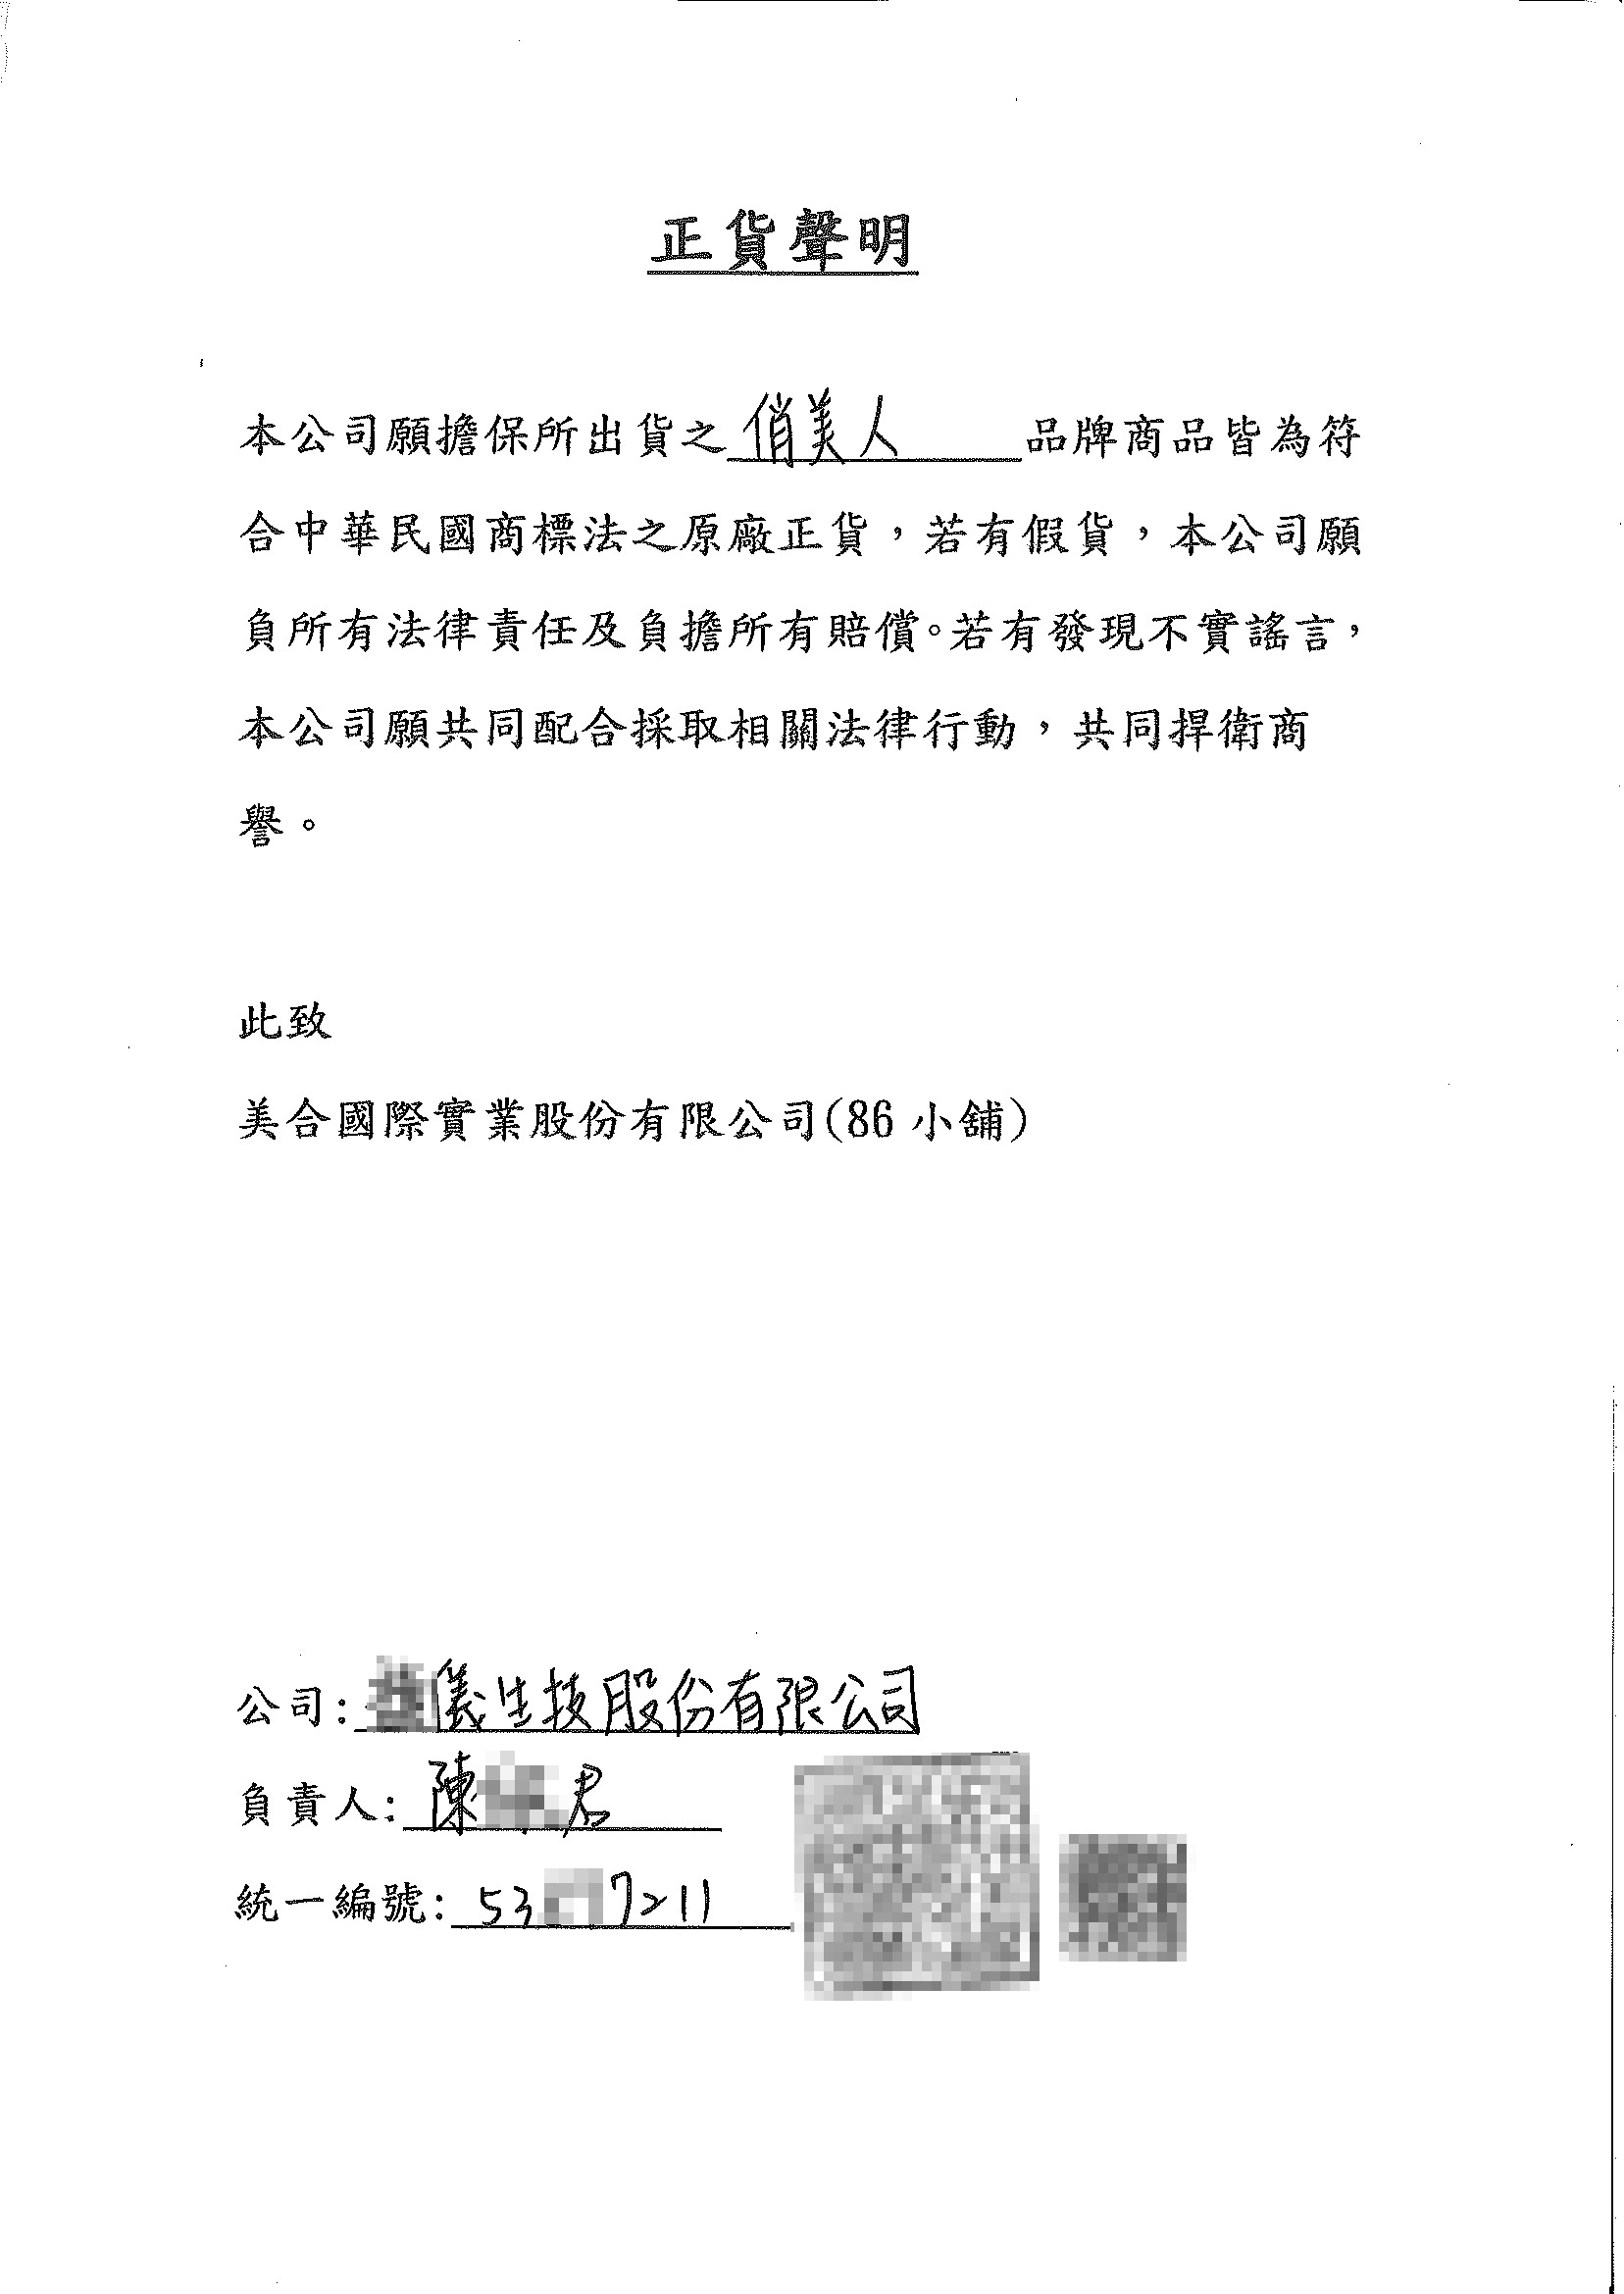 正貨聲明
本公司願擔保所出貨之俏美人品牌商品皆為符
合中華民國商標法之原廠正貨，若有假貨，本公司願
負所有法律責任及負擔所有賠償。若有發現不實謠言，
本公司願共同配合採取相關法律行動，共同捍衛商
譽。
此致
美合國際實業股份有限公司(86小舖)
公司:儀生技股份有限公司
負責人:陳 君
統一編號:53 7211